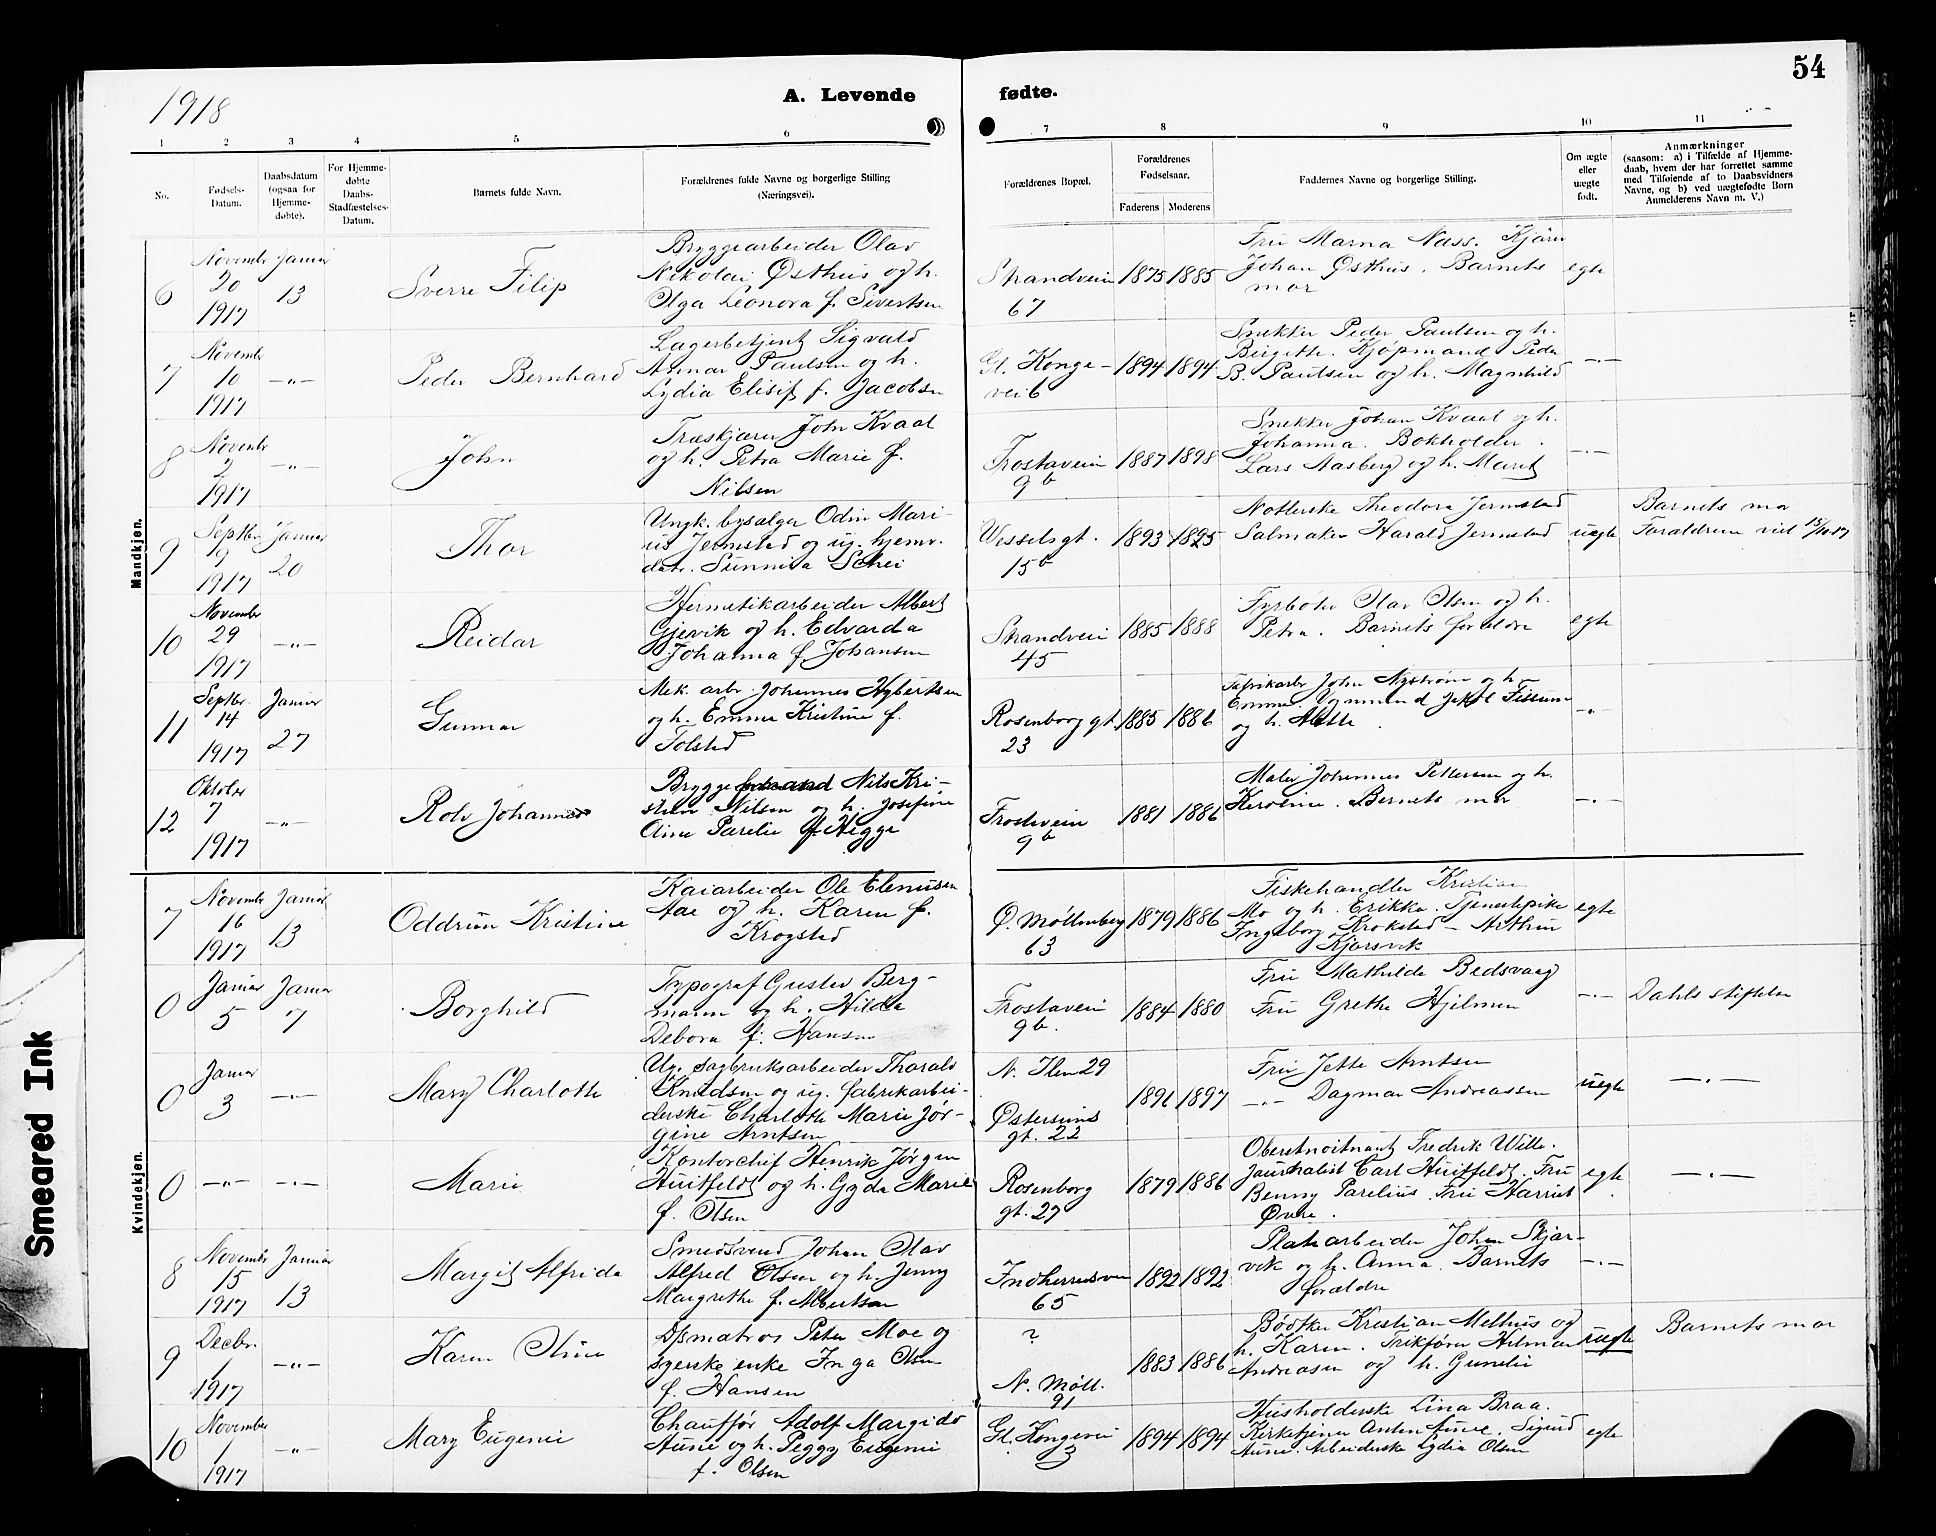 54
1918
A. Levende fødte.
1 2 3 4 5 6 7 8 9 10 11
No.
Fødsels-
Datum.
Daabsdatum
(ogsaa for
Hjemme-
døbte).
For Hjemme-
døbte
Daabs-
Stadfæstelses-
Datum.
Barnets fulde Navn.
Forældrenes fulde Navne og borgerlige Stilling
(Næringsvei).
Forældrenes Bopæl.
Forældrenes
Fødselsaar.
Faderens Moderens
Faddernes Navne og borgerlige Stilling.
Om ægte
eller
uægte
født.
Anmærkninger
(saasom: a) i Tilfælde af Hjemme-
daab, hvem der har forrettet samme
med Tilføiende af to Daabsvidners
Navne, og b) ved uægtefødte Børn
Anmelderens Navn m. V.)
Mandkjøn.
6
Novembr
20
1917
Januar
13
Sverre Filip
Bryggearbeider Olav
Nikolai Østhus og h.
Olga Leonora f. Sivertsen
Strandveien
67
1875 1885
Fru Marna Næss. Kjøru
Johan Østhus. Barnets
mor
egte
7
Novembr
10
1917
-"-
Peder Bernhard
Lagerbetjent Sigvald
Annar Paulsen og h.
Lydia Elisif f. Jacobsen
Gl. Konge-
vei 6
1894 1894
Snekker Peder Paulsen og h.
Birgitte. Kjøpmand Peder
B. Paulsen og h. Magnhild
-"-
8
Novembr
2
1917
-"-
John
Træskjærer John Kvaal
og h. Petra Marie f.
Nilsen
Frostaveien
9b
1887 1898
Snekker Johan Kvaal og h.
Johanna. Bokholder
Lars Aasberg og h. Marit
-"-
9
Septbr
9
1917
Januar
20
Thor
Ungk. bysælger Odin Mari-
us Jermstad og ug. hjemv.
datr. Sunniva Schei
Wesselsgt.
15b
1893 1895
Notterske Theodora Jermstad
Salmaker Harald Jermstad
uegte
Barnets mor
Forældrene viet 15/10 17
10
November
29
1917
-"-
Reidar
Hermetikarbeider Albert
Gjervik og h. Edvarda
Johanna f. Johansen
Strandveien
45
1885 1888
Fyrbøter Olav Olsen og h.
Petra. Barnets forældre
egte
11
Septbr.
14
1917
Januar
27
Gunnar
Mek. arb. Johannes Hybertsen
og h. Emma Kristine f.
Folstad
Rosenborg gt.
23
1885 1886
Fabrikarb. John Nystrøm og h.
Emma. Vognmand Jakob Fissum
og h. Mette
-"-
12
Oktober
7
1917
-"-
Rolv Johannes
Brygge Nils Kri-
stian Nilsen og h. Josefine
Aine Parelie f. Higge
Frostaveien
9b
1881 1886
Maler Johannes Pettersen og h.
Karoline. Barnets mor
-"-
Kvindekjøn.
7
Novembr
16
1917
Januar
13
Oddrun Kristine
Kaiarbeider Ole Elenusen
Aae og h. Karen f.
Krogstad
Ø. Møllenberg
63
1879 1886
Fiskehandler Kristian
Mo og h. Erikke. Tjenestepike
Ingeborg Krokstad - Arthur
Kjørsvik
egte
0
Januar
5
Januar
7
Borghild
Typograf Gustav Berg-
mann og h. Hilda
Debora f. Hansen
Frostaveien
9b.
1884 1880
Fru Mathilde Bedsvaag
Fru Grethe Hjelmen
-"-
Dahls stiftelse
0
Januar
3
-"-
Mary Charlotte
Ug. sagbruksarbeider Tharald
Knudsen og ug. fabrikarbei-
derske Charlotte Marie Jør-
gine Arntsen
N. Ilen 29
Østersunds
gt. 22
1891 1897
Fru Jette Arntsen
-"- Dagmar Andreassen
uegte
-"-
0
-"-
-"-
Marie
Kontorchef Henrik Jørgen
Huitfeldt og h. Gyda Marie
f. Olsen
Rosenborg
gt. 27
1879 1886
Oberstløitnant Fredrik Wille.
Journalist Carl Huitfeldt. Fru
Benny Parelius. Fru Harriet
Øvre.
egte
-"-
8
Novembr
15
1917
Januar
13
Margit Alfrida
Smedsvend Johan Olav
Alfred Olsen og h. Jenny
Margrethe f. Albertsen
Indherredsvei
65
1892 1892
Platearbeider Johan Skjær-
vik og h. Anna. Barnets
forældre
-"-
9
Decbr.
1
1917
-"-
Karen Oline
Dpsmatros Peter Moe og
syerske enke Inga Olsen
f. Hansen
?
N. Møll.
91
1883 1886
Bødker Kristian Melhus og
h. Karen. Trikkfører Hilmar
Andreasen og h. Gunelie
uegte
Barnets mor
10
November
1
1917
-"-
Mary Eugenie
Chauffør Adolf Margido
Aune og h. Peggy Eugenie
f. Olsen
Gl. Kongevei
3
1894 1894
Husholderske Lina Braa.
Kirketjener Anton Aune. Sigurd
Aune. Arbeiderske Lydia Olsen
egte
Smeared Ink